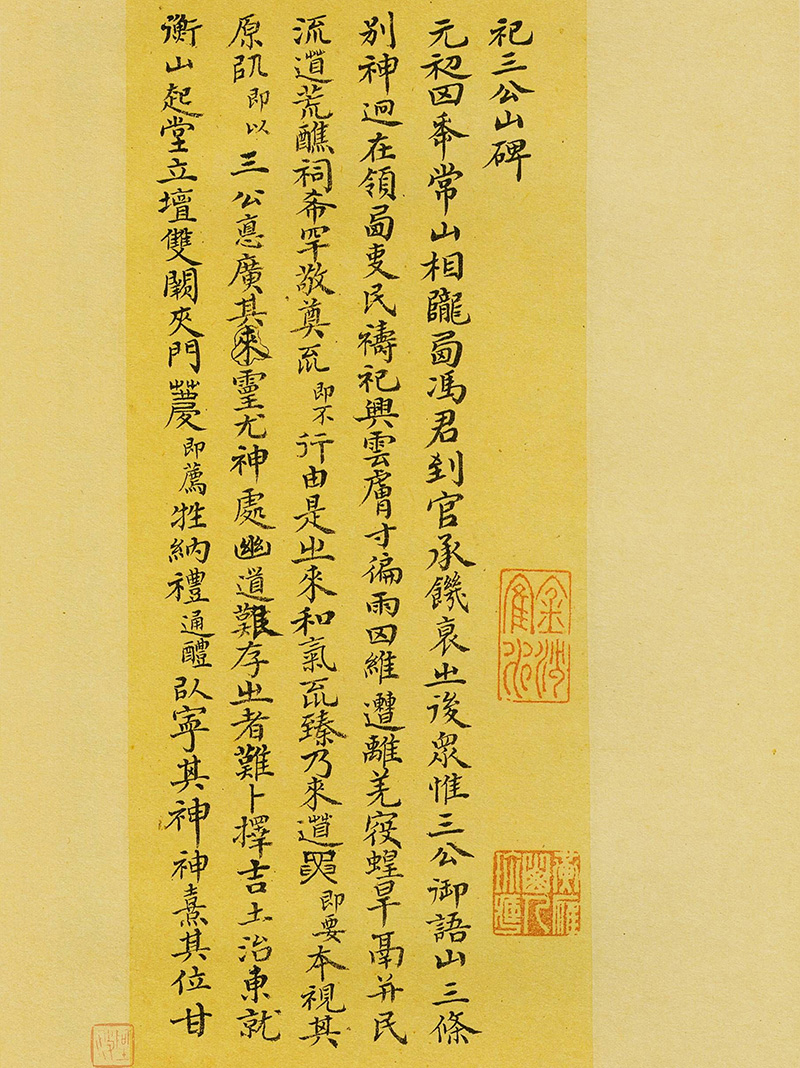 祀三公山碑
元初四年常山相隴西馮君到官承饑衰之後衆惟三公御語山三條
別神迥在領西吏民禱祀興雲膚寸徧雨四維遭離羌寇蝗旱鬲并民
流道荒醮祠希罕敬奠不即不行由是之來和氣不臻乃來道要即要本視其
原以即以三公惪廣其靈尤神處幽道艱存之者難卜擇吉土治東就
衡山起堂立壇雙闕夾門薦即薦牲納禮通醴以寧其神神熹其位甘